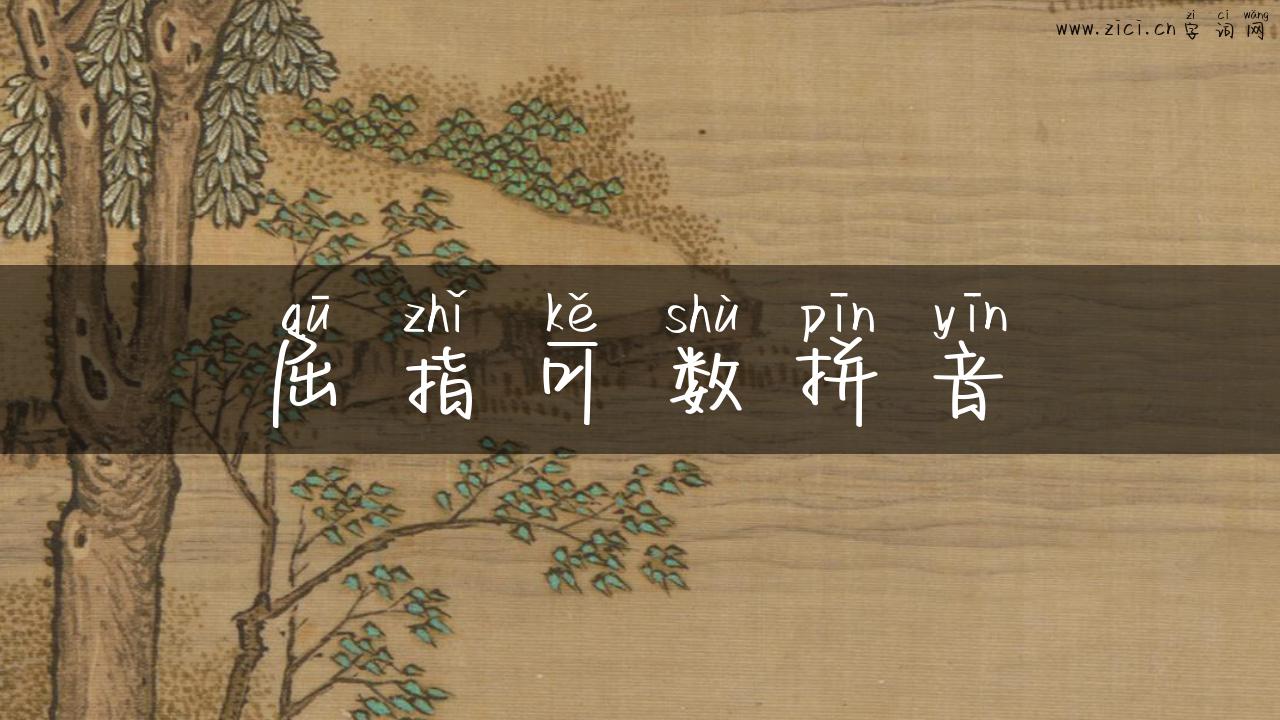 zì cí wǎng
www.zici.cn字词网
qū zhǐ kě shù pīn yīn
屈指可数拼音